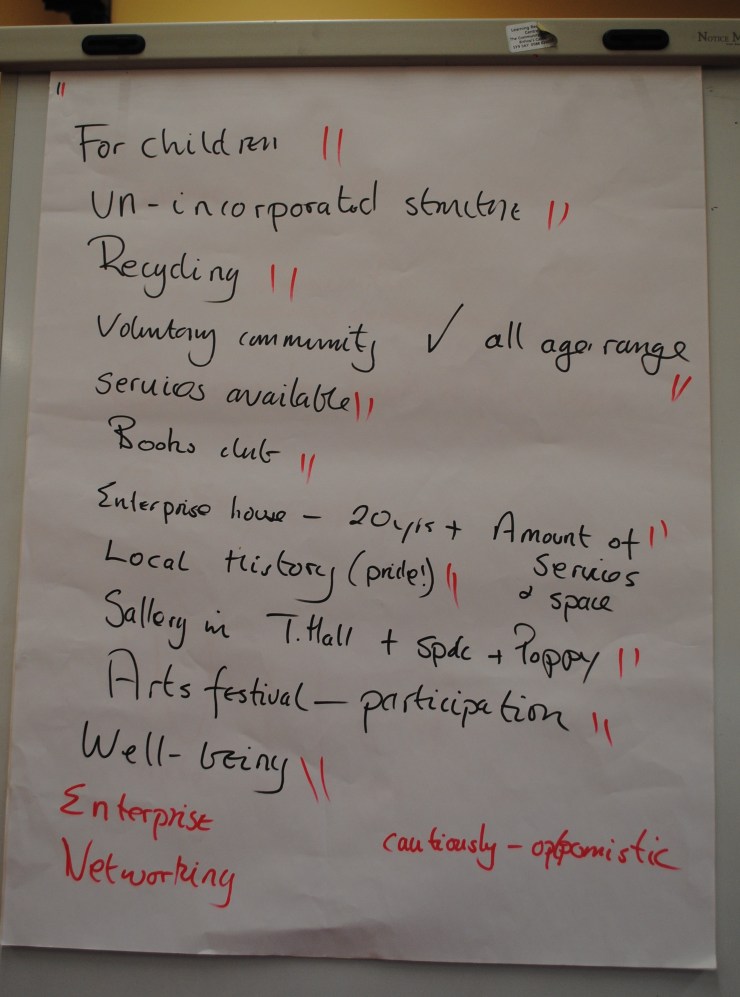 For children
Un-incorporated structure
Recycling
Voluntary community ✓ all age range
services available
Books club
Enterprise house – 20yrs + Amount of
services
& space
Local History (pride!)
Gallery in T.Hall + spdc + Poppy
Arts festival – participation
Well-being
Enterprise
Networking
cautiously – optomistic
NOTICE M